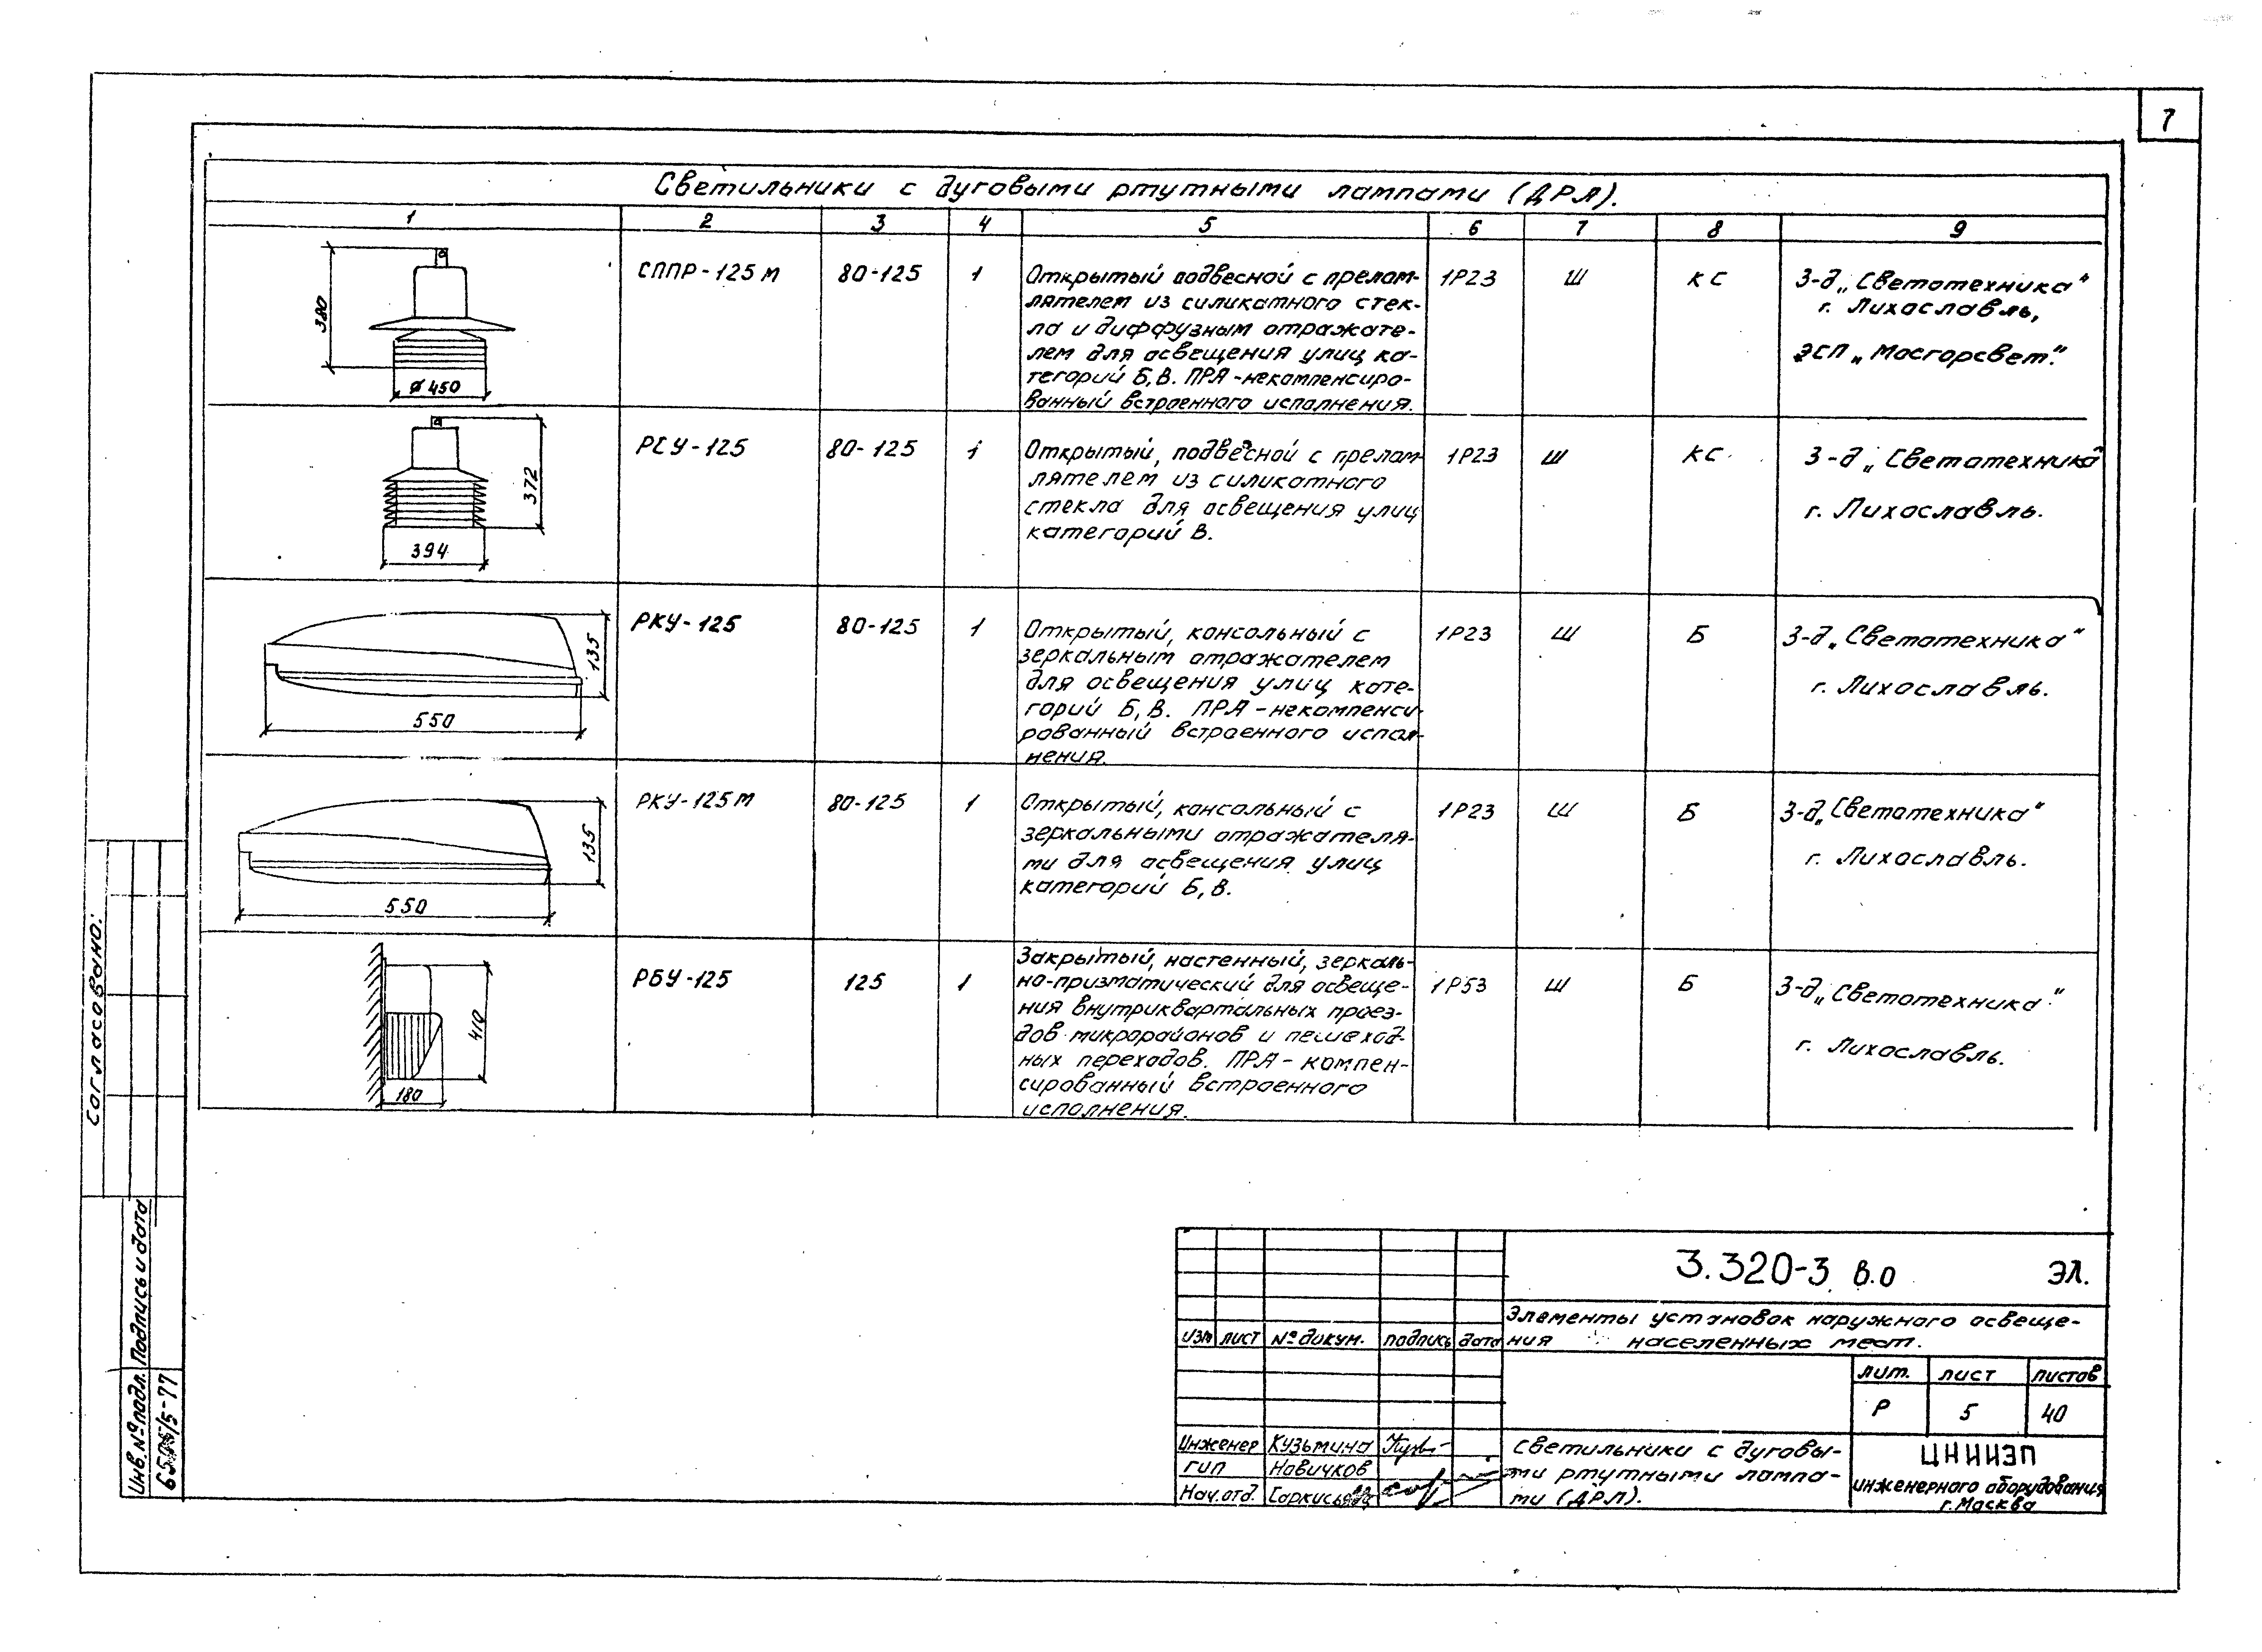 7
Светильники с дуговыми ртутными лампами (ДРЛ).
1 2 3 4 5 6 7 8 9
380
ø 450
СППР-125м
80-125
1
Открытый подвесной с прелом-
лятелем из силикатного стек-
ла и диффузным отражате-
лем для освещения улиц ка-
тегорий Б, В. ПРА-некомпенсиро-
ванный встроенного исполнения.
1Р23
Ш
КС
З-д „Светотехника"
г. Лихославль,
ЭСП „Мосгорсвет".
372
394
РСУ-125
80-125
1
Открытый, подвесной с прелом-
лятелем из силикатного
стекла для освещения улиц
категорий В.
1Р23
Ш
КС
З-д „Светотехника"
г. Лихославль.
135
550
РКУ-125
80-125
1
Открытый, консольный с
зеркальным отражателем
для освещения улиц кате-
горий Б, В. ПРА-некомпенси-
рованный встроенного испол-
нения.
1Р23
Ш
Б
З-д „Светотехника"
г. Лихославль.
135
550
РКУ-125м
80-125
1
Открытый, консольный с
зеркальными отражателя-
ми для освещения улиц
категорий Б, В.
1Р23
Ш
Б
З-д „Светотехника"
г. Лихославль.
410
180
РБУ-125
125
1
Закрытый, настенный, зеркаль-
но-призматический для освеще-
ния внутриквартальных проез-
дов микрорайонов и пешеход-
ных переходов. ПРА-компен-
сированный встроенного
исполнения.
1Р53
Ш
Б
З-д „Светотехника".
г. Лихославль.
Согласовано:
Инв. № подл. Подпись и дата
3.320-3 В.0 ЭЛ.
Элементы установок наружного освеще-
ния населенных мест.
изм лист № докум. подпись дата
лит. лист листов
Р 5 40
Инженер Кузьмина
ГИП Новичков
Нач.отд.
Светильники с дуговы-
ми ртутными лампа-
ми (ДРЛ).
ЦНИИЭП
инженерного оборудования
г. Москва